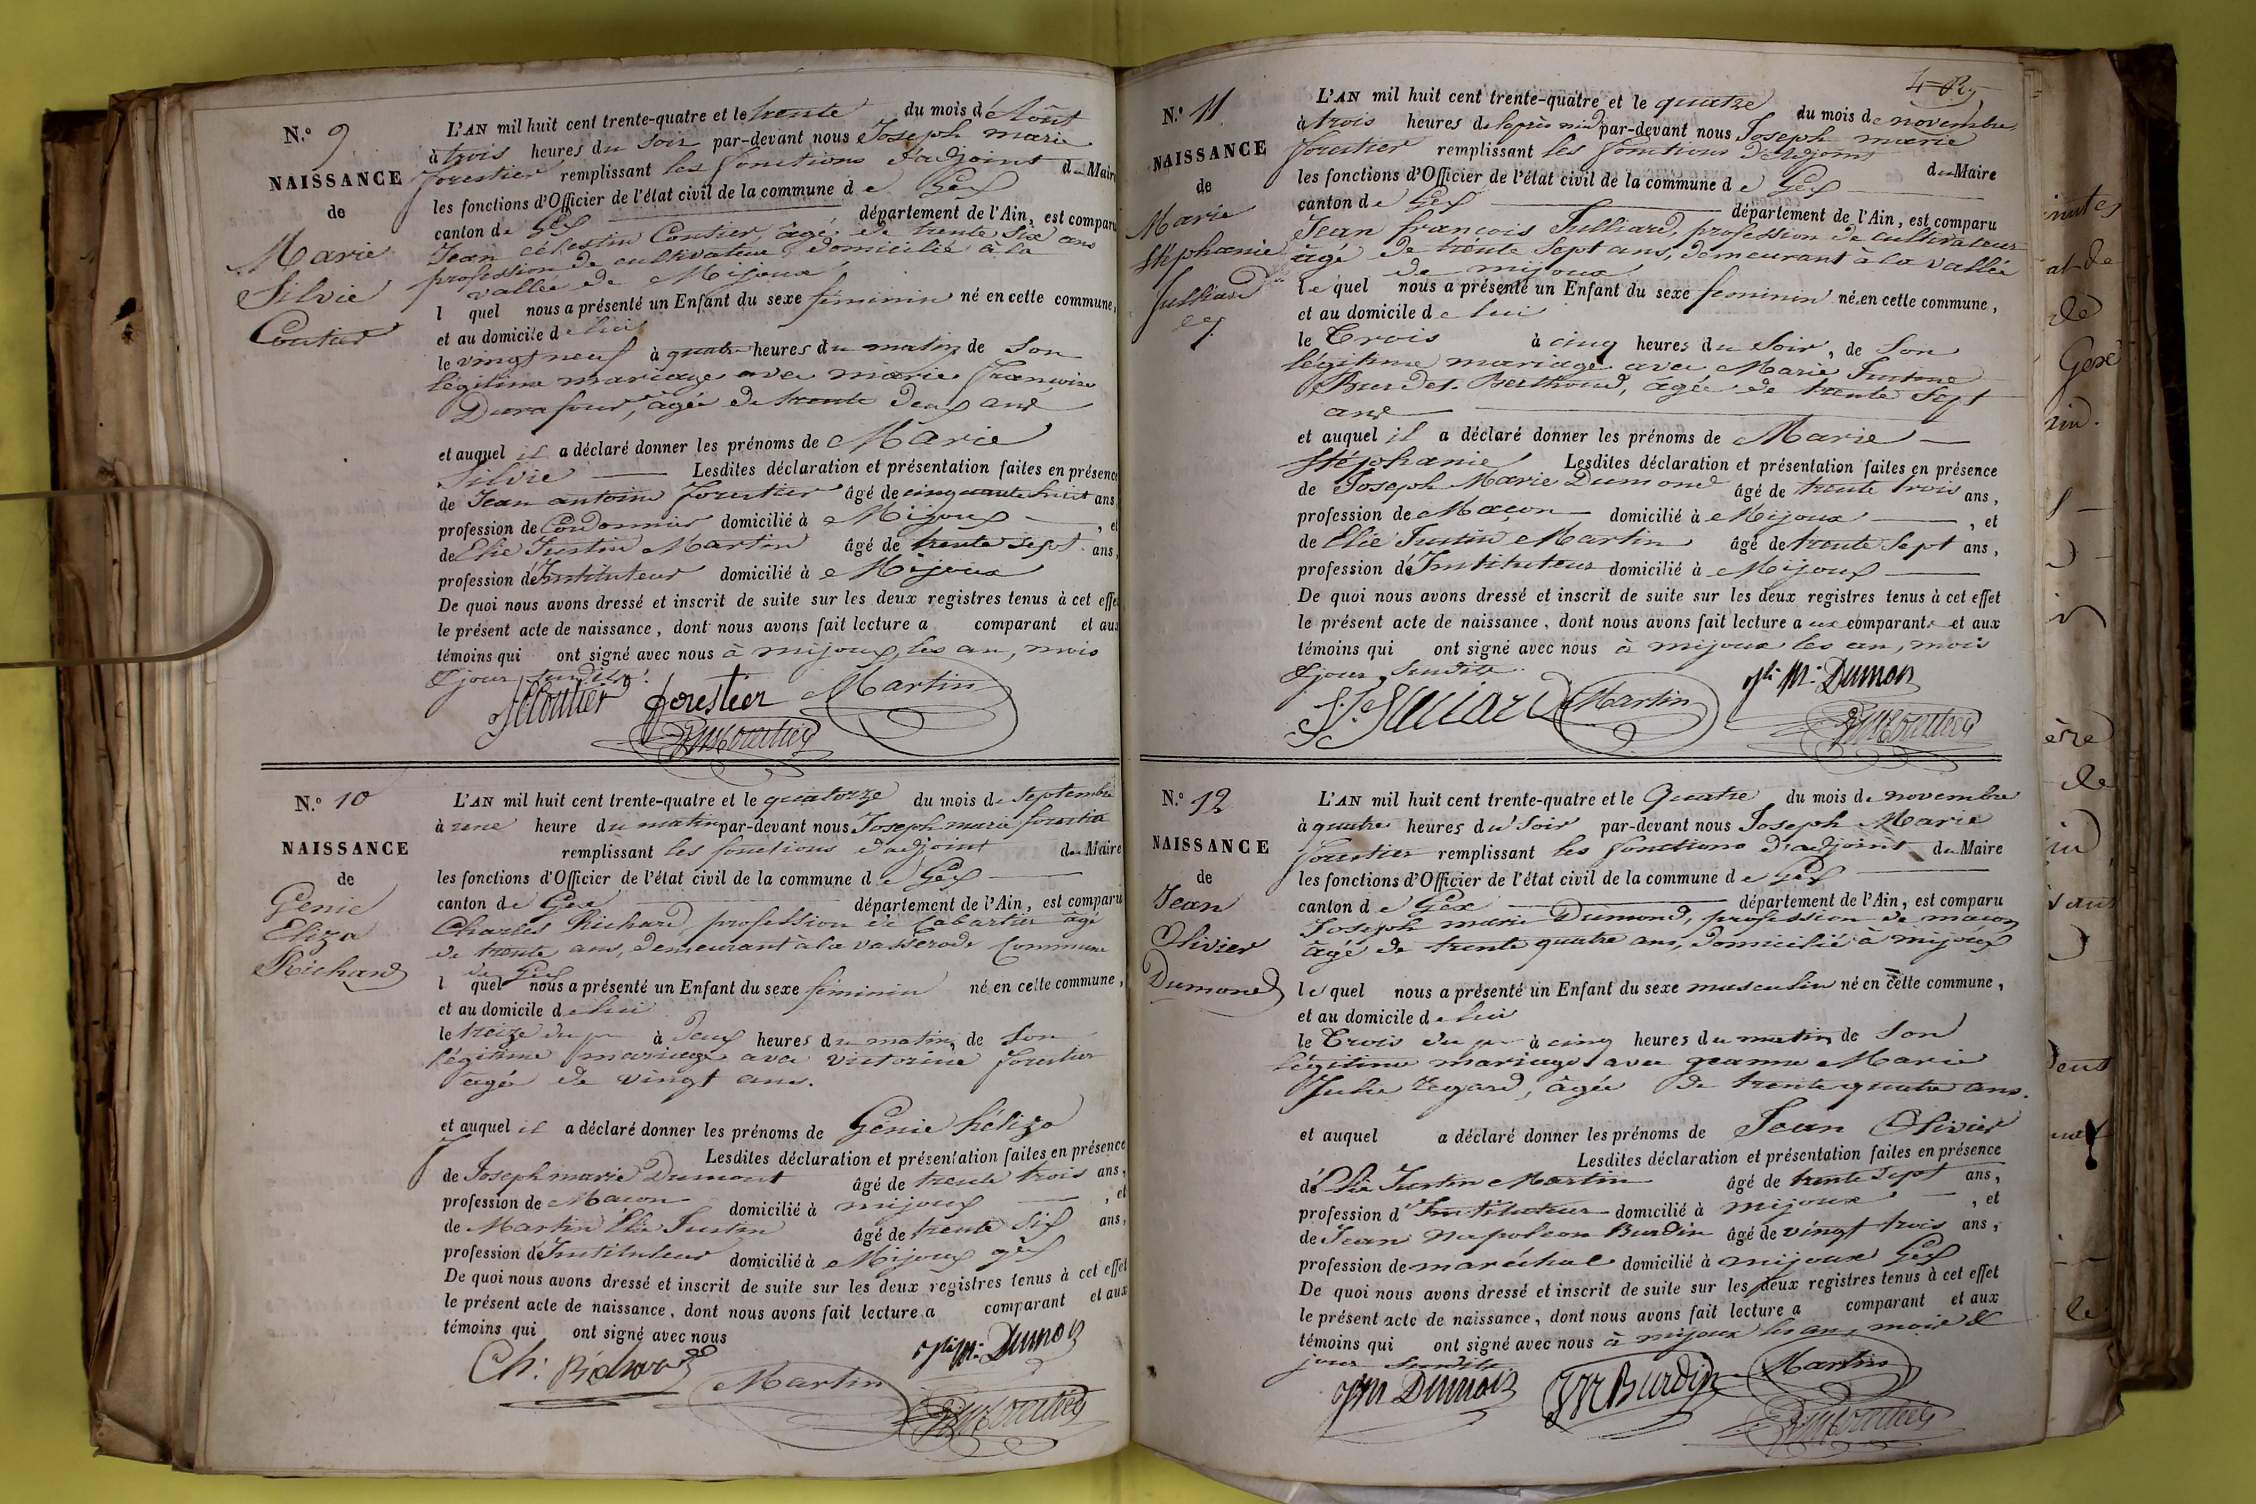 N.° 9
NAISSANCE
de
Marie
Silvie
Coutier
L'AN mil huit cent trente-quatre et le trente du mois d'Aôut
à trois heures du soir par-devant nous Joseph marie
forestier remplissant les fonctions d'adjoint du Maire
les fonctions d'Officier de l'état civil de la commune de Gex
canton de Gex département de l'Ain, est comparu
Jean célestin Coutier, âgé de trente six ans
profession de cultivateur domicilié à la
vallée de Mijoux
l quel nous a présenté un Enfant du sexe féminin né en cette commune,
et au domicile de lui
le vingt neuf à quatre heures du matin, de son
légitime mariage avec marie françoise
Durafour, âgée de trente deux ans
et auquel il a déclaré donner les prénoms de Marie
Silvie Lesdites déclaration et présentation faites en présence
de Jean antoine forestier âgé de cinquante huit ans,
profession de Cordonnier domicilié à Mijoux, et
de Elie Justin Martin âgé de trente sept ans,
profession d'Instituteur domicilié à Mijoux
De quoi nous avons dressé et inscrit de suite sur les deux registres tenus à cet effet
le présent acte de naissance, dont nous avons fait lecture a comparant et aux
témoins qui ont signé avec nous à mijoux, les an, mois
& jour susdits.
Coutier forestier Martin
N.° 10
NAISSANCE
de
Génie
Eliza
Richard
L'AN mil huit cent trente-quatre et le quatorze du mois de septembre
à une heure du matin par-devant nous Joseph marie forestier
remplissant les fonctions d'adjoint du Maire
les fonctions d'Officier de l'état civil de la commune de Gex
canton de Gex département de l'Ain, est comparu
Charles Richard, profession de Cabartier âgé
de trente ans, demeurant à la vasserode Commune
de Gex
l quel nous a présenté un Enfant du sexe féminin né en cette commune,
et au domicile de lui
le treize du à deux heures du matin, de son
légitime mariage avec victorine forestier
âgée de vingt ans.
et auquel il a déclaré donner les prénoms de Génie héliza
Lesdites déclaration et présentation faites en présence
de Joseph marie Dumont âgé de trente trois ans,
profession de Maçon domicilié à mijoux, et
de Martin Elie Justin âgé de trente six ans,
profession d'Instituteur domicilié à Mijoux gex
De quoi nous avons dressé et inscrit de suite sur les deux registres tenus à cet effet
le présent acte de naissance, dont nous avons fait lecture a comparant et aux
témoins qui ont signé avec nous
Ch: Richard Martin Jh M: Dumon
N.° 11
NAISSANCE
de
Marie
Stéphanie
Julliard
L'AN mil huit cent trente-quatre et le quatre du mois de novembre
à trois heures de laprès midi par-devant nous Joseph marie
forestier remplissant les fonctions d'Adjoint du Maire
les fonctions d'Officier de l'état civil de la commune de Gex
canton de Gex département de l'Ain, est comparu
Jean françois Julliard, profession de cultivateur
âgé de trente sept ans, demeurant à la vallée
de mijoux
le quel nous a présenté un Enfant du sexe feminin né en cette commune,
et au domicile de lui
le Trois à cinq heures du soir, de son
légitime mariage avec Marie Justine
Berthoud, âgée de trente sept
ans
et auquel il a déclaré donner les prénoms de Marie
Stéphanie Lesdites déclaration et présentation faites en présence
de Joseph Marie Dumond âgé de trente trois ans,
profession de Maçon domicilié à Mijoux, et
de Elie Justin Martin âgé de trente sept ans,
profession d'Instituteur domicilié à Mijoux
De quoi nous avons dressé et inscrit de suite sur les deux registres tenus à cet effet
le présent acte de naissance, dont nous avons fait lecture a ux comparants et aux
témoins qui ont signé avec nous à mijoux les an, mois
& jour susdits.
Martin Jh M: Dumon
N.° 12
NAISSANCE
de
Jean
Olivier
Dumond
L'AN mil huit cent trente-quatre et le Quatre du mois de novembre
à quatre heures du soir par-devant nous Joseph Marie
forestier remplissant les fonctions d'adjoint du Maire
les fonctions d'Officier de l'état civil de la commune de Gex
canton de Gex département de l'Ain, est comparu
Joseph marie Dumond, profession de maçon
âgé de trente quatre ans, domicilié à mijoux
le quel nous a présenté un Enfant du sexe masculin né en cette commune,
et au domicile de lui
le Trois du à cinq heures du matin, de son
légitime mariage avec jeanne Marie
Julie regard, âgée de trente quatre ans.
et auquel a déclaré donner les prénoms de Jean Olivier
Lesdites déclaration et présentation faites en présence
d'Elie Justin Martin âgé de trente sept ans,
profession d'Instituteur domicilié à mijoux, et
de Jean Napoléon Burdin âgé de vingt trois ans,
profession de maréchal domicilié à mijoux Gex
De quoi nous avons dressé et inscrit de suite sur les deux registres tenus à cet effet
le présent acte de naissance, dont nous avons fait lecture a comparant et aux
témoins qui ont signé avec nous à mijoux les an, mois &
jour susdits
JM Dumon JN Burdin Martin